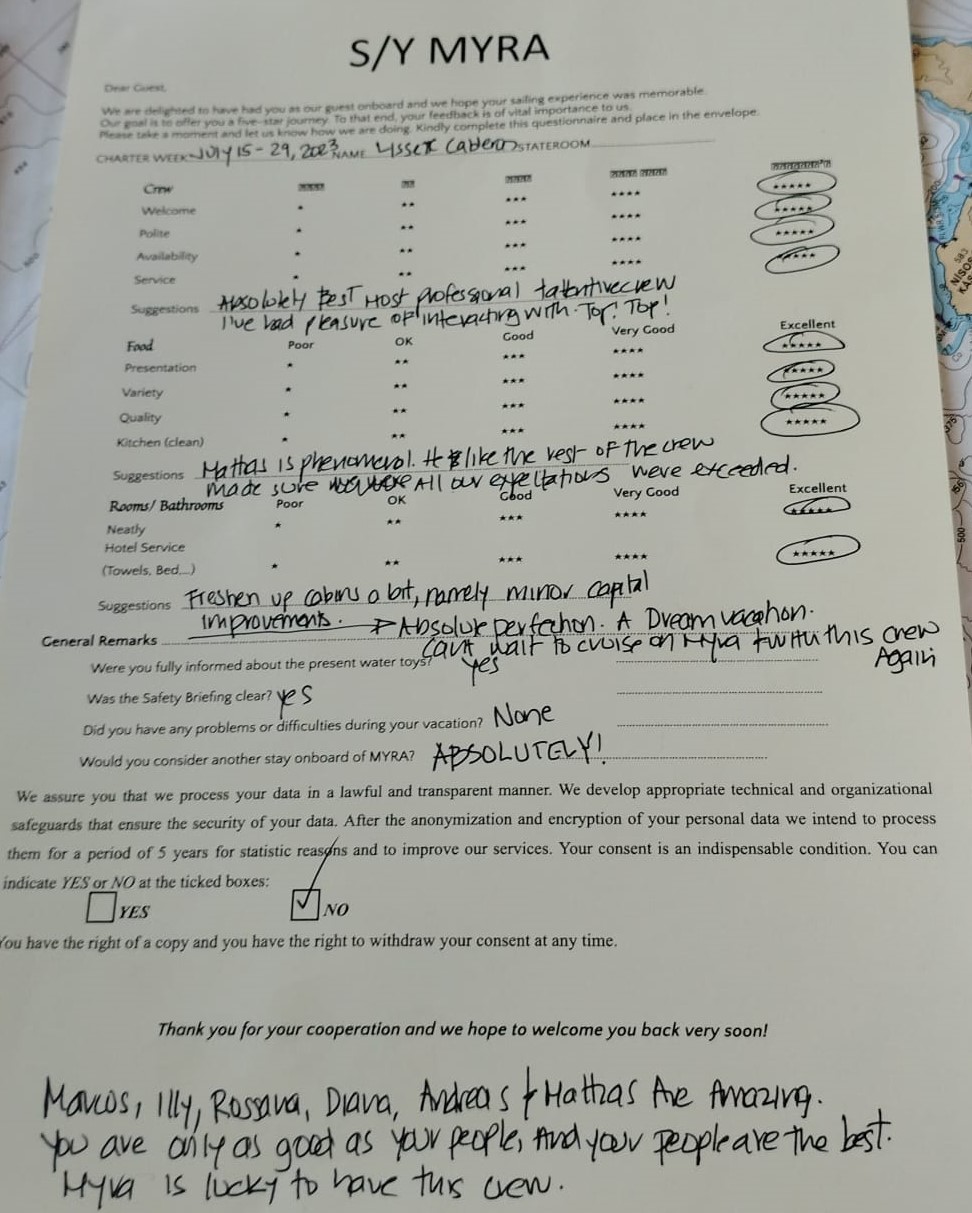 S/Y MYRA
Dear Guest,
We are delighted to have had you as our guest onboard and we hope your sailing experience was memorable.
Our goal is to offer you a five-star journey. To that end, your feedback is of vital importance to us.
Please take a moment and let us know how we are doing. Kindly complete this questionnaire and place in the envelope.
CHARTER WEEK JULY 15-29, 2023 NAME STATEROOM
Crew
Welcome * ** *** **** *****
Polite * ** *** **** *****
Availability * ** *** **** *****
Service * ** *** **** *****
Suggestions Absolutely Best Most professional + attentive crew
I've had pleasure of interacting with. Top! Top!
Food Poor OK Good Very Good Excellent
Presentation * ** *** **** *****
Variety * ** *** **** *****
Quality * ** *** **** *****
Kitchen (clean) * ** *** **** *****
Suggestions Mathas is phenomenal. He like the rest of the crew
made sure All our expectations were exceeded.
Rooms/ Bathrooms Poor OK Good Very Good Excellent
Neatly * ** *** **** *****
Hotel Service
(Towels, Bed,...) * ** *** **** *****
Suggestions Freshen up cabins a bit, namely minor capital
improvements.
General Remarks Absolute perfection. A Dream vacation.
Can't wait to cruise on Myra + with this crew
Again
Were you fully informed about the present water toys? Yes
Was the Safety Briefing clear? yes
Did you have any problems or difficulties during your vacation? None
Would you consider another stay onboard of MYRA? ABSOLUTELY!
We assure you that we process your data in a lawful and transparent manner. We develop appropriate technical and organizational
safeguards that ensure the security of your data. After the anonymization and encryption of your personal data we intend to process
them for a period of 5 years for statistic reasons and to improve our services. Your consent is an indispensable condition. You can
indicate YES or NO at the ticked boxes:
YES NO
You have the right of a copy and you have the right to withdraw your consent at any time.
Thank you for your cooperation and we hope to welcome you back very soon!
Marcos, Illy, Rossana, Diana, Andreas + Mathas Are Amazing.
You are only as good as your people, And your people are the best.
Myra is lucky to have this crew.